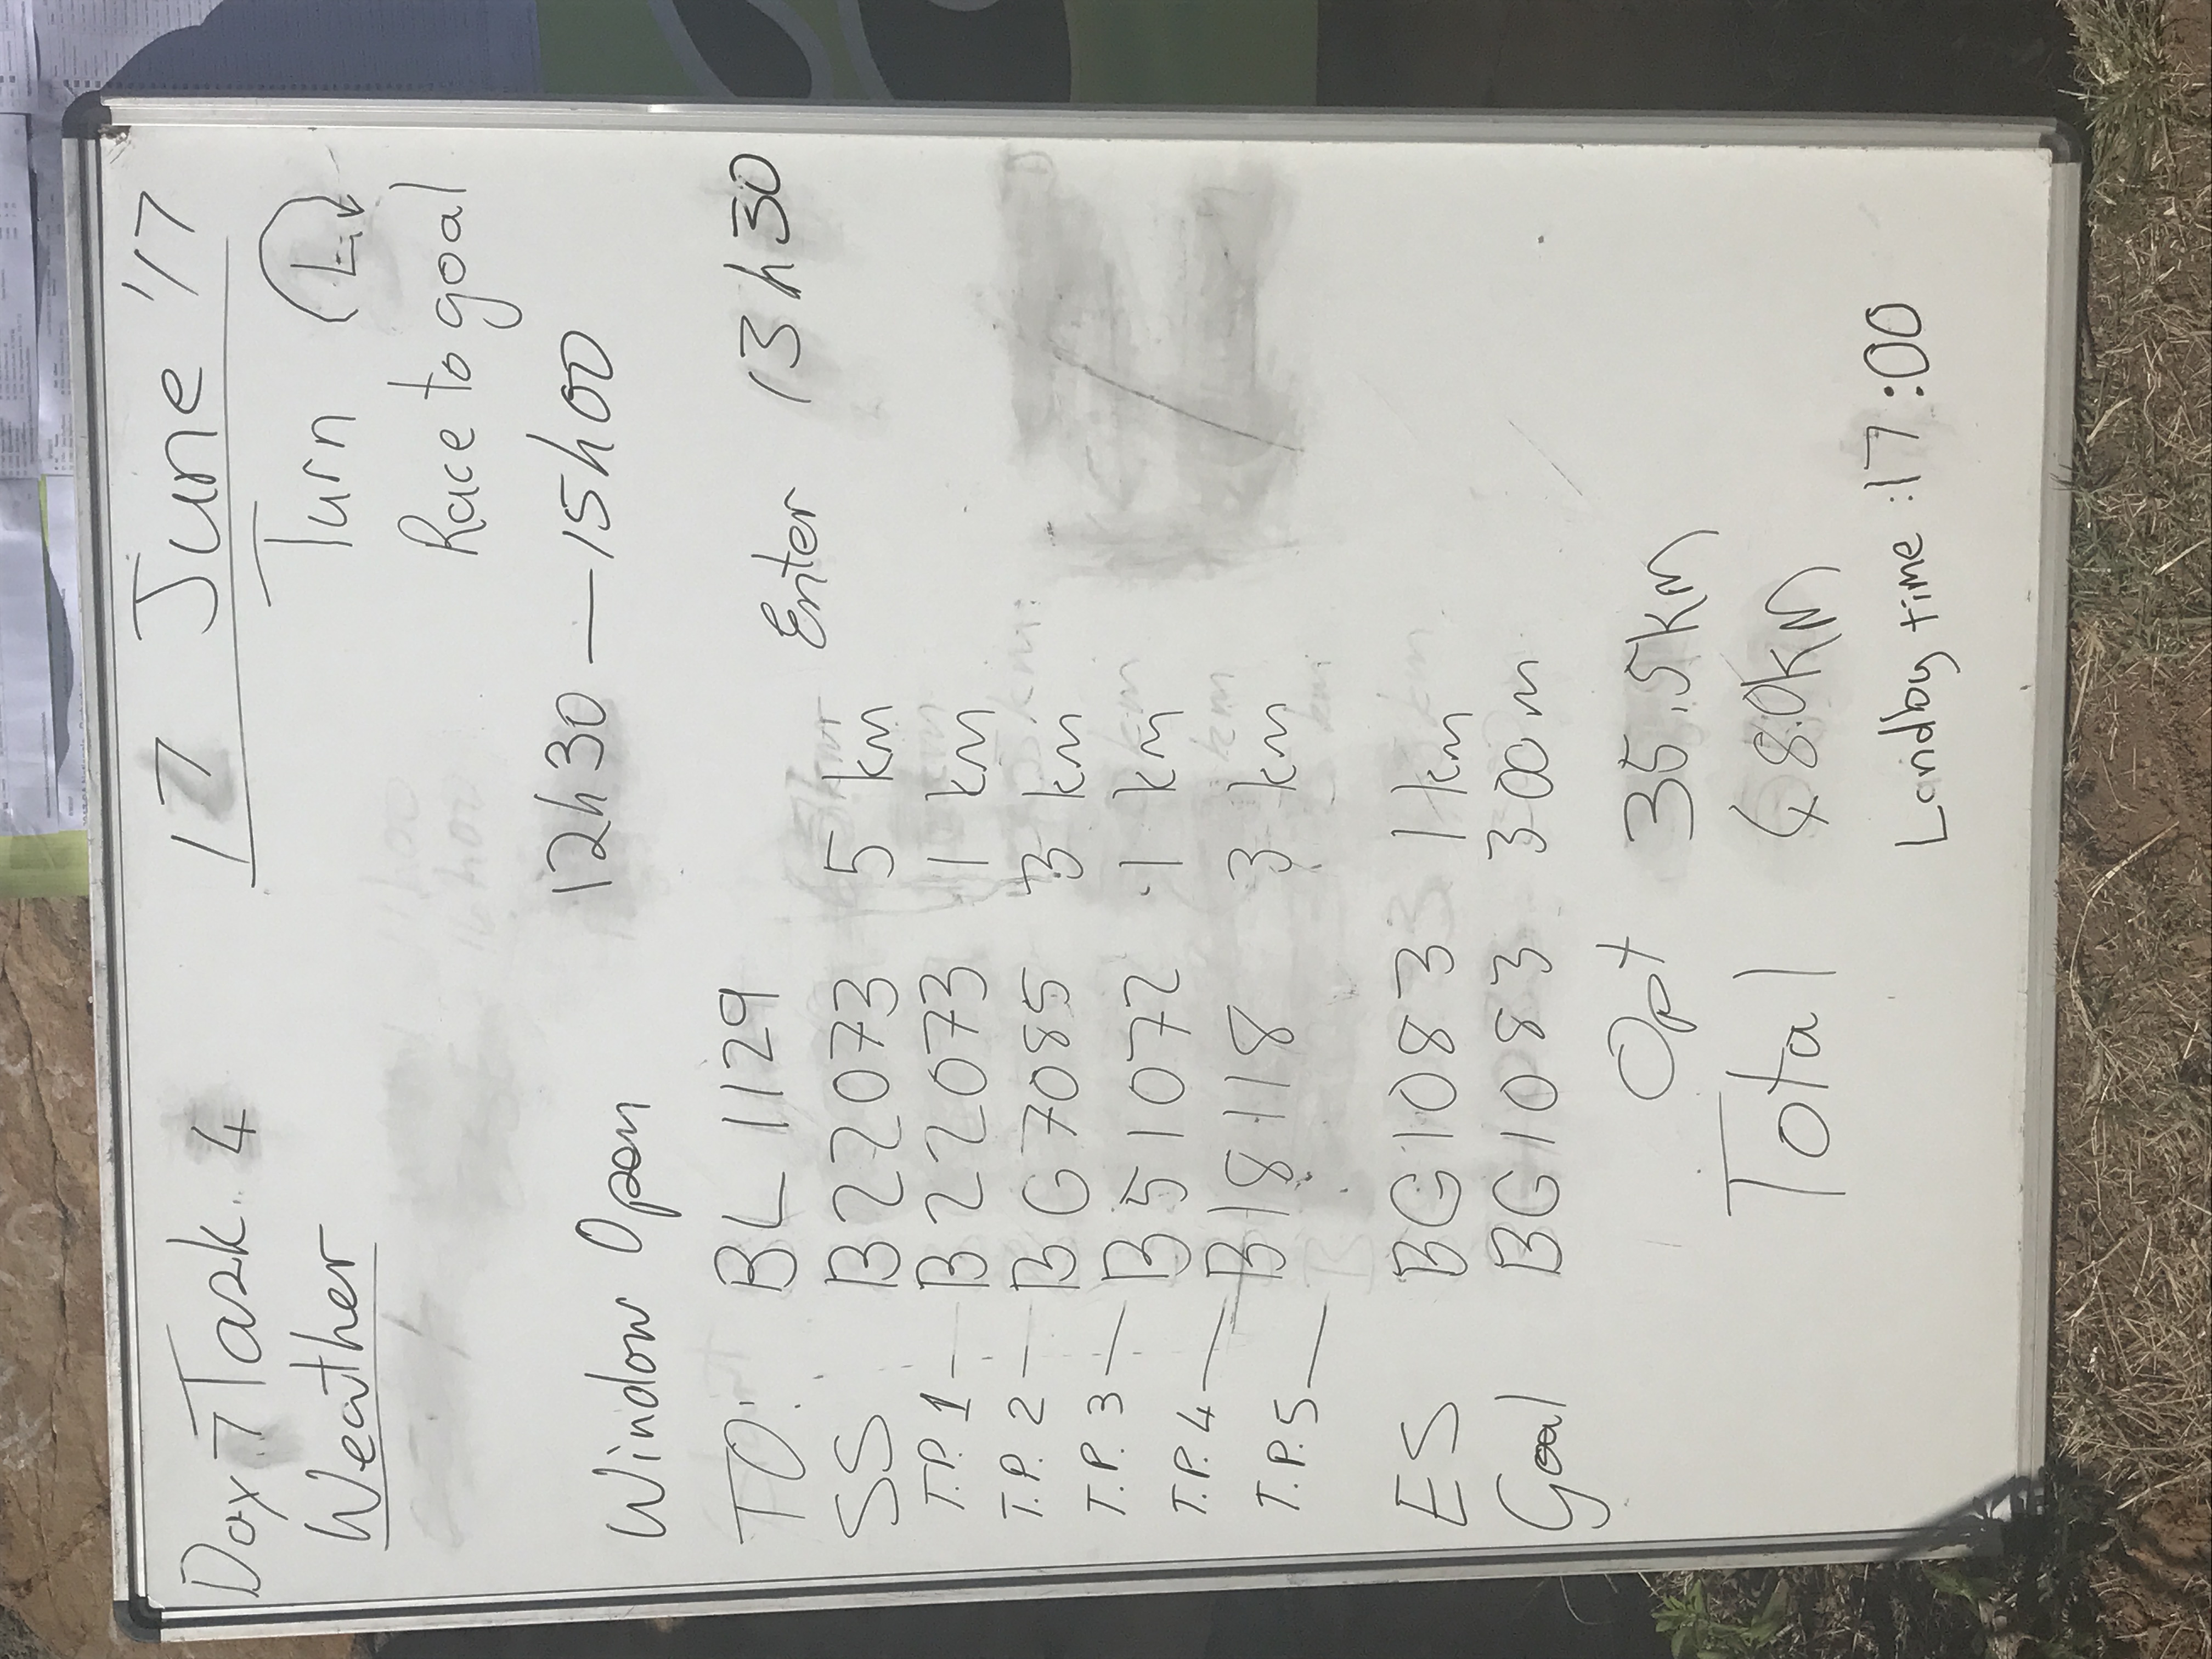 Day 7 Task 4 17 June '17
Weather Turn L
Race to goal
Window Open 12h30 — 15h00
T.O. BL 1129
SS B22073 5 km Enter 13h30
T.P. 1 — B22073 1 km
T.P. 2 — BG7085 3 km
T.P. 3 — B51072 1 km
T.P. 4 — B18118 3 km
T.P. 5 —
ES BG1083 1 km
Goal BG1083 300m
Opt 35.5km
Total 68.0km
Landby time : 17:00